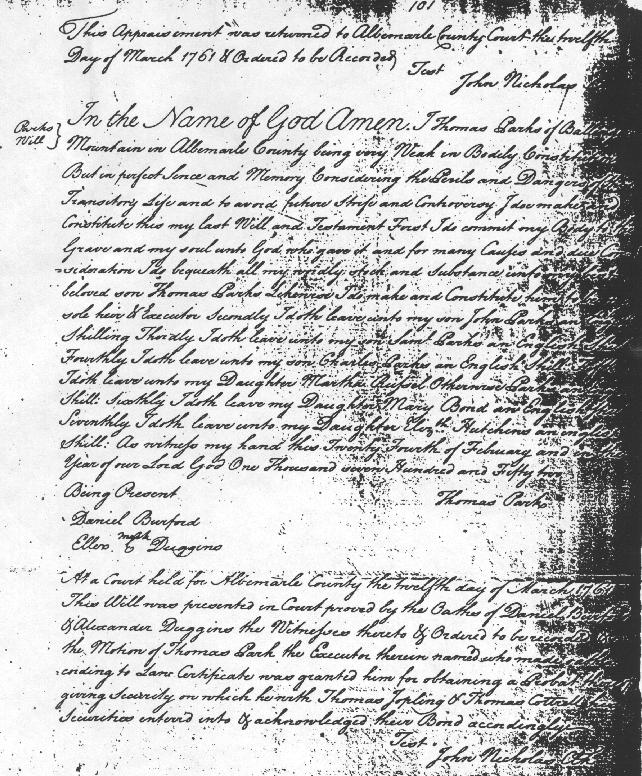 101
This Appraisement was returned to Albemarle County Court the twelfth
Day of March 1761 & Ordered to be Recorded
Test
John Nicholas
Parks
Will
In the Name of God Amen. I Thomas Parks of
Mountain in Albemarle County being very Weak in Bodily
But in perfect Sence and Memory Considering the Perils and Dangers of
Transitory Life and to avoid future Strife and Controversy I doe make
Constitute this my last Will and Testament First I do commit my Body to the
Grave and my soul unto God who gave it and for many Causes and due
I do bequeath all my worldly stock and Substance unto my
beloved son Thomas Parks Likewise I do make and Constitute him to be
sole heir & Executor Secondly I doth leave unto my son John Parks an
Shilling Thirdly I doth leave unto my son Saml Parks an English
Fourthly I doth leave unto my son Charles Parks an English
I doth leave unto my Daughter Martha Otherwise
Shill: Sixthly I doth leave my Daughter Mary Bond an English
Seventhly I doth leave unto my Daughter Elizth Hutchins an
Shill: As witness my hand this Twenty Fourth of Febuary and in the
Year of our Lord God One Thousand seven Hundred and Fifty
Being Present
Thomas Park
Daniel Burford
Ellex. mark Duggins
At a Court held for Albemarle County the twelfth day of March 1761
This Will was presented in Court proved by the Oaths of
& Alexander Duggins the Witnesses thereto & Ordered to be recorded
the Motion of Thomas Park the Executor therein named who made
cording to Law Certificate was granted him for obtaining a Probat
giving Security on which he with Thomas Jopling & Thomas
Securities enterd into & acknowledged their Bond accordingly
Test
John Nicholas